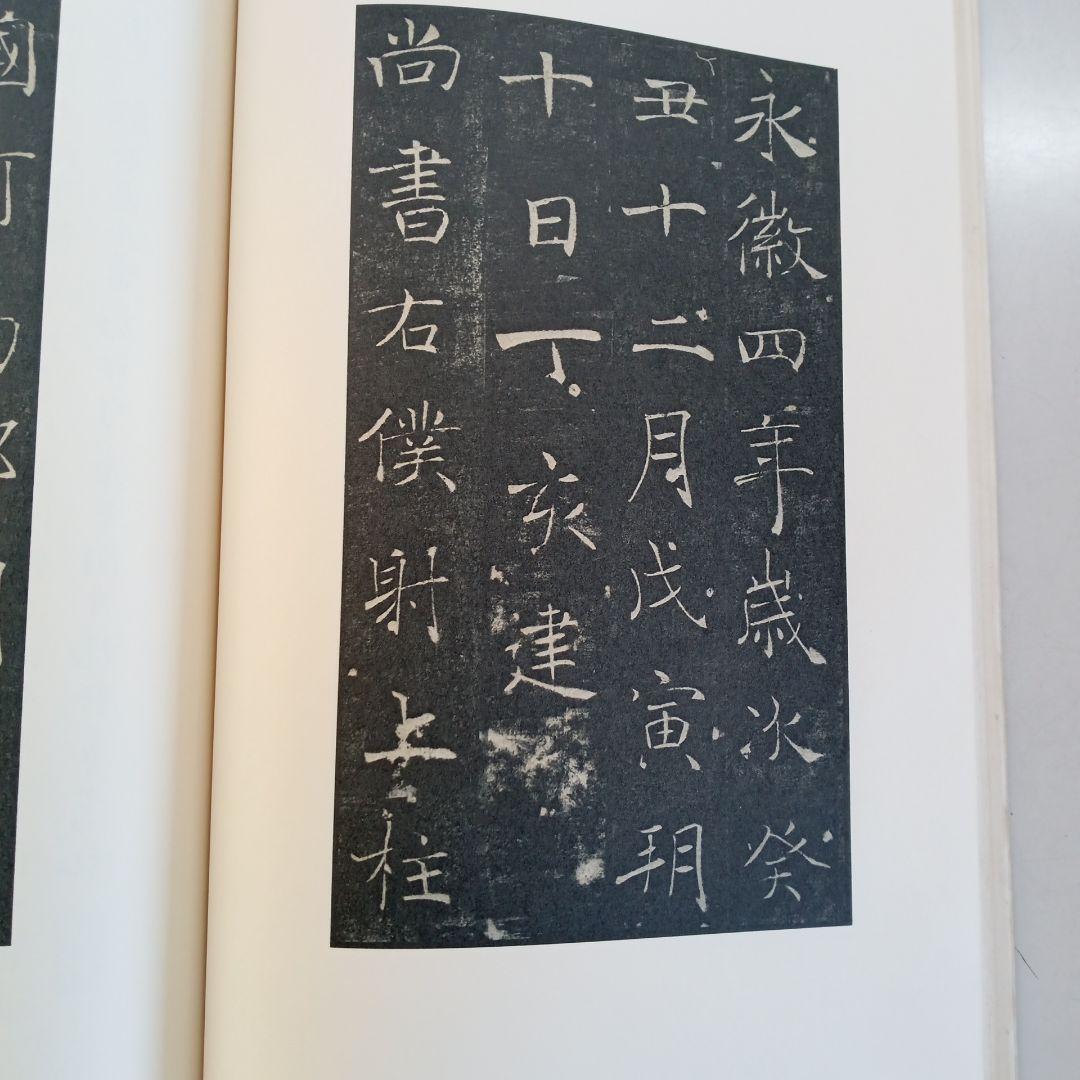 永徽四年歲次癸
丑十二月戊寅朔
十日丁亥建
尚書右僕射上柱
國